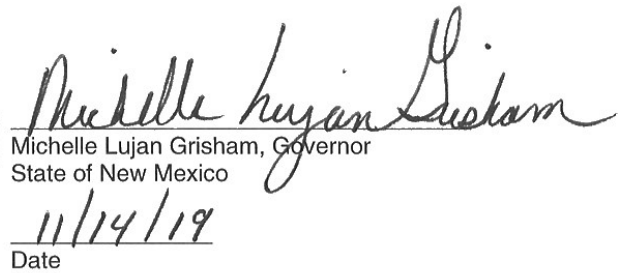 Michelle Lujan Grisham
Michelle Lujan Grisham, Governor
State of New Mexico
11/14/19
Date